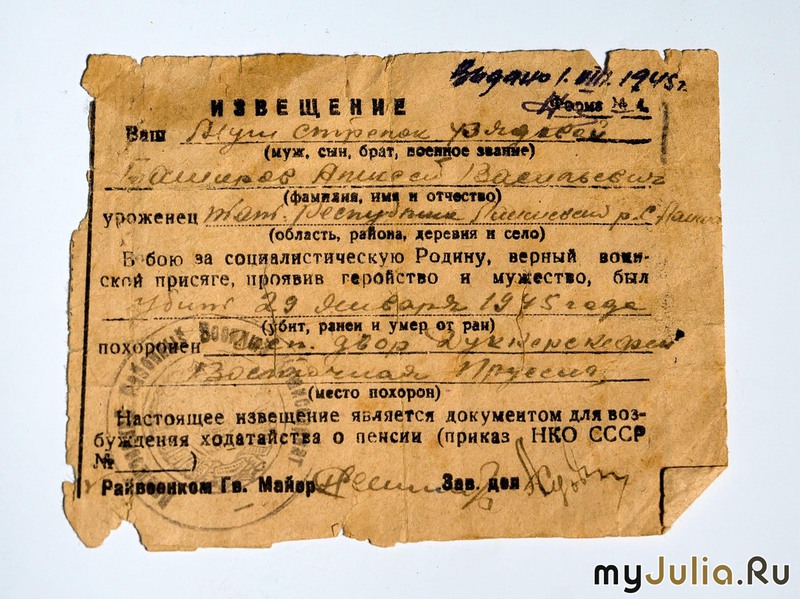 Выдано 1. VIII. 1945г.
ИЗВЕЩЕНИЕ Форма № 4
Ваш Муж стрелок рядовой
(муж, сын, брат, военное звание)
Башкиров Алексей Васильевич
(фамилия, имя и отчество)
уроженец Тат. Республика
(область, района, деревня и село)
В бою за социалистическую Родину, верный воин-
ской присяге, проявив геройство и мужество, был
убит 29 января 1945 года
(убит, ранен и умер от ран)
похоронен двор
Восточная Пруссия
(место похорон)
Настоящее извещение является документом для воз-
буждения ходатайства о пенсии (приказ НКО СССР
№ )
Райвоенком Гв. Майор Зав. дел
myJulia.Ru